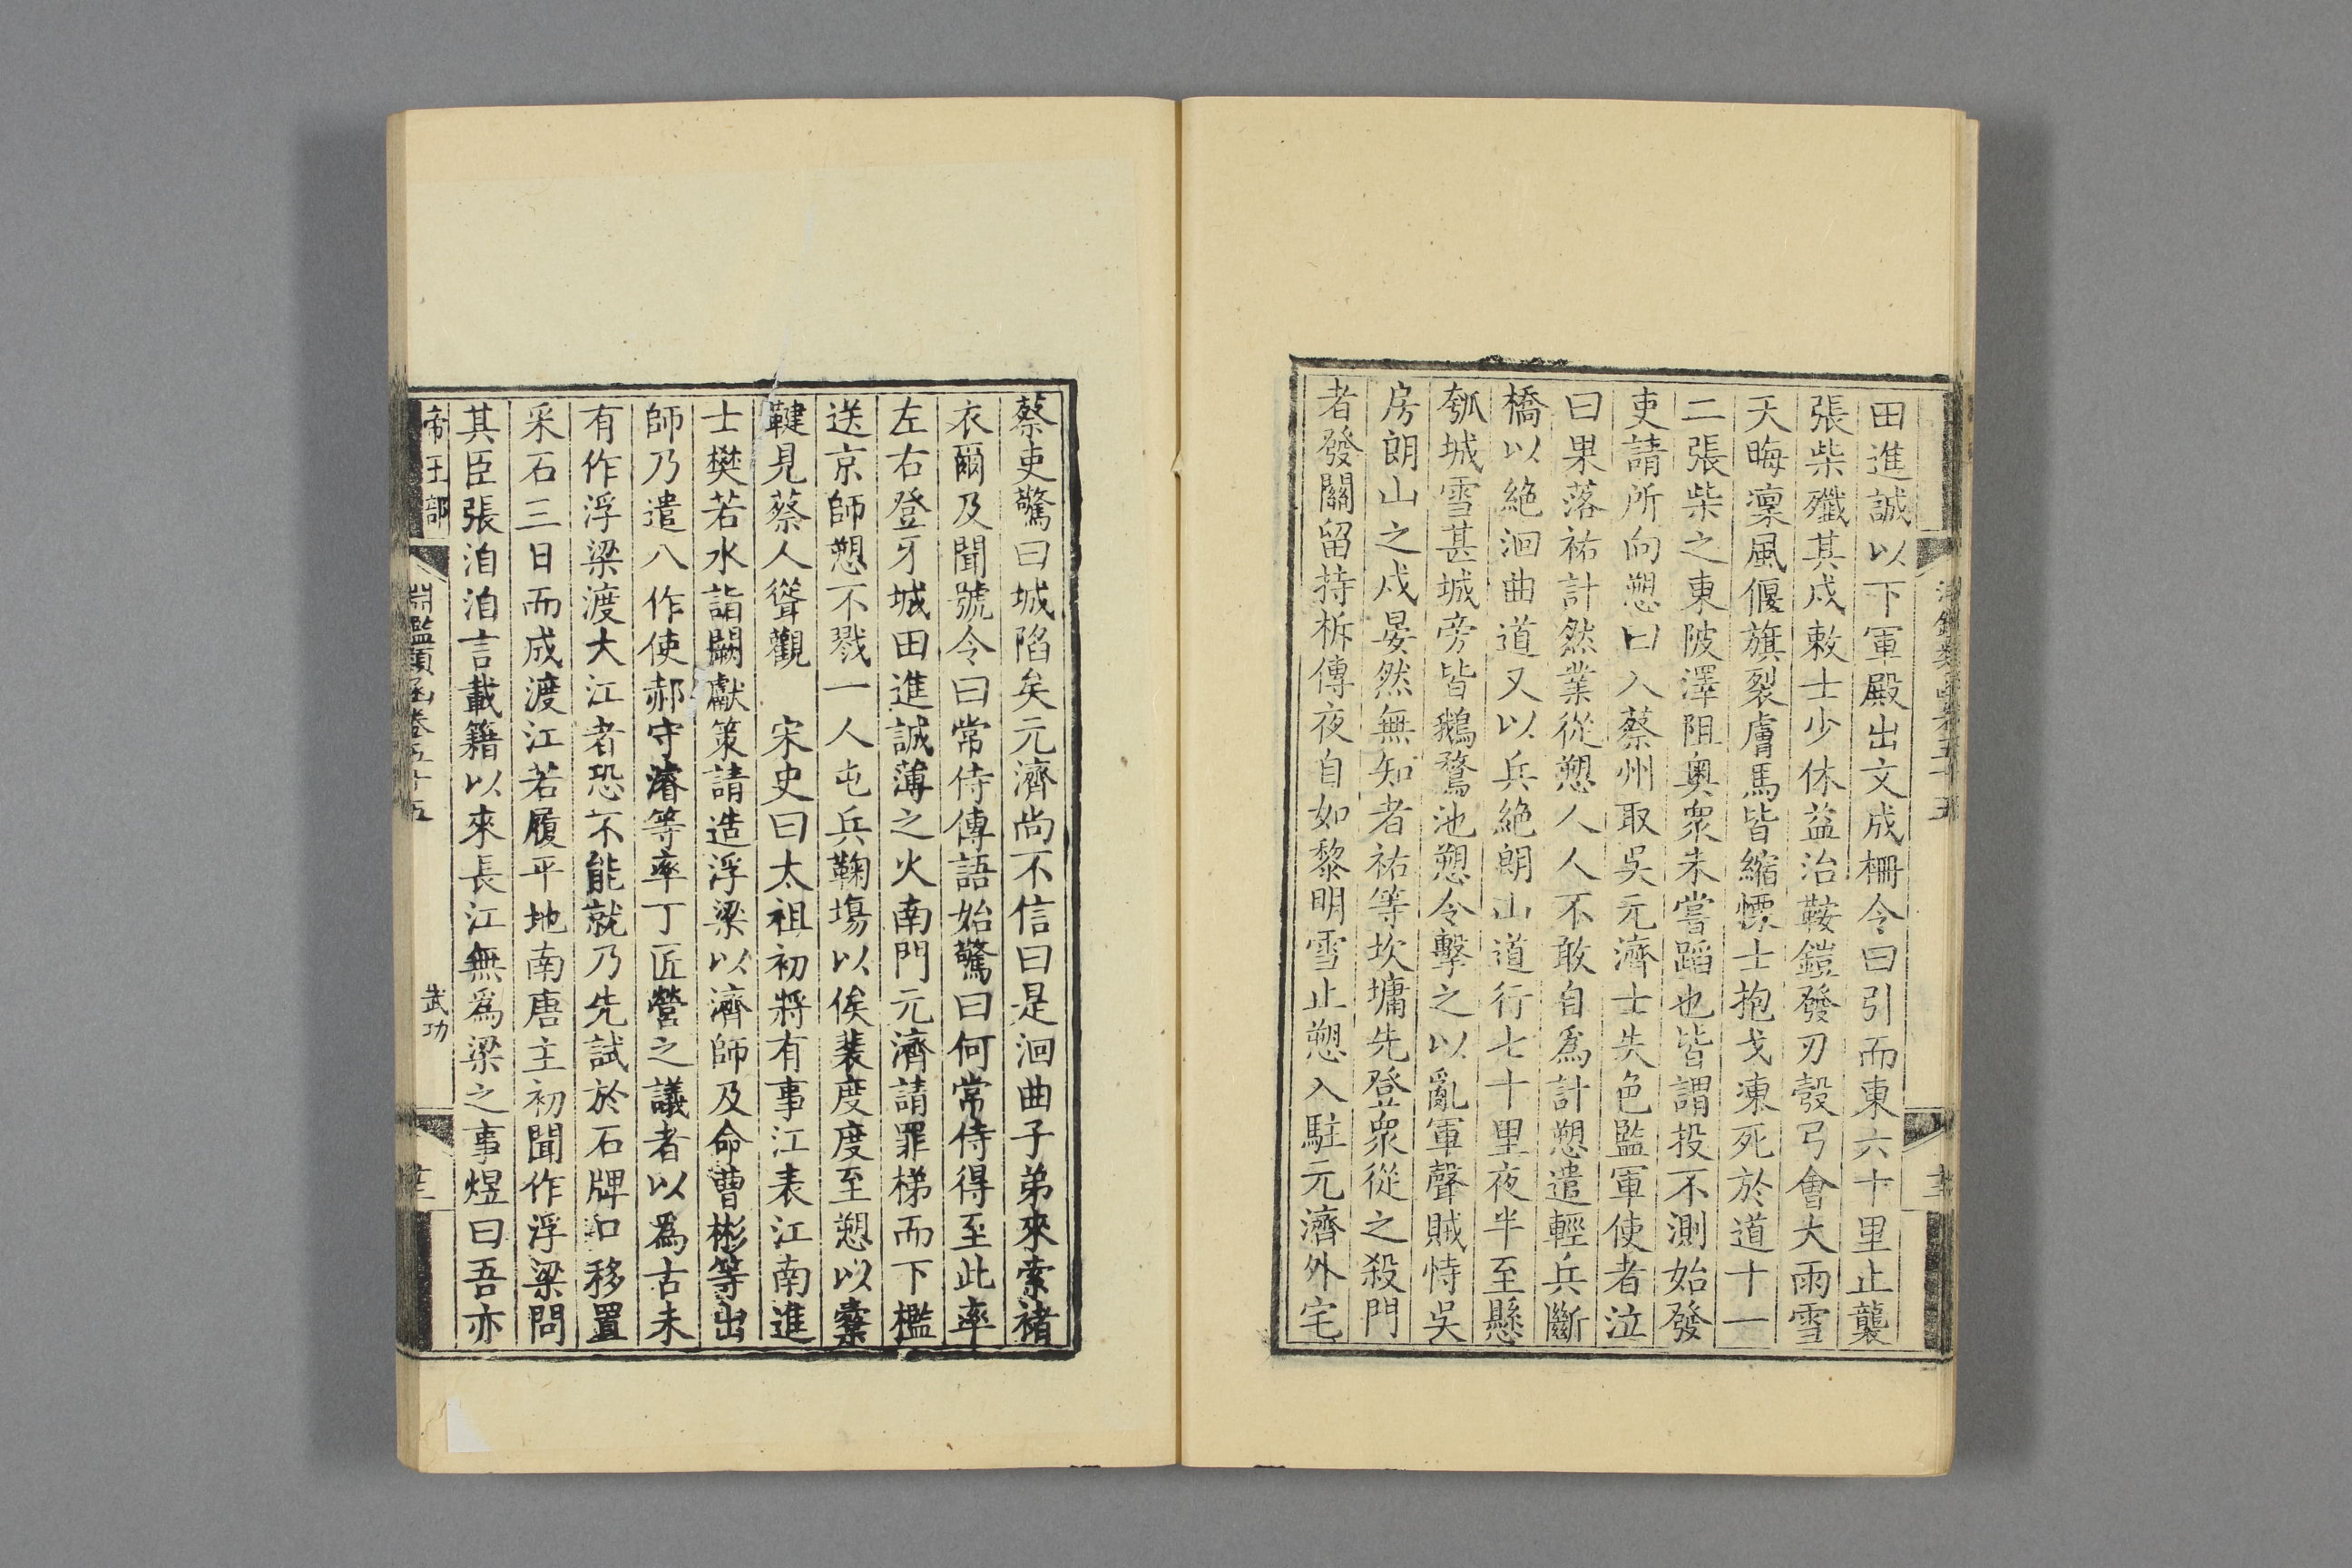 田進誠以下軍殿出文成柵令曰引而東六十里止襲
張柴殲其戍敕士少休益治鞍鎧發刃彀弓會大雨雪
天晦凜風偃旗裂膚馬皆縮慄士抱戈凍死於道十一
二張柴之東陂澤阻奧衆未嘗蹈也皆謂投不測始發
吏請所向愬曰入蔡州取吳元濟士失色監軍使者泣
曰果落祐計然業從愬人人不敢自爲計愬遣輕兵斷
橋以絶洄曲道又以兵絶朗山道行七十里夜半至懸
瓠城雪甚城旁皆鵝鶩池愬令擊之以亂軍聲賊恃吳
房朗山之戍晏然無知者祐等坎墉先登衆從之殺門
者發關留持柝傳夜自如黎明雪止愬入駐元濟外宅
蔡吏驚曰城陷矣元濟尚不信曰是洄曲子弟來索褚
衣爾及聞號令曰常侍傳語始驚曰何常侍得至此率
左右登牙城田進誠薄之火南門元濟請罪梯而下檻
送京師愬不戮一人屯兵鞠場以俟裴度度至愬以櫜
鞬見蔡人聳觀　宋史曰太祖初將有事江表江南進
士樊若水詣闕獻策請造浮梁以濟師及命曹彬等出
師乃遣八作使郝守濬等率丁匠營之議者以爲古未
有作浮梁渡大江者恐不能就乃先試於石牌口移置
采石三日而成渡江若履平地南唐主初聞作浮梁問
其臣張洎洎言載籍以來長江無爲梁之事煜曰吾亦
帝王部
淵鑑類函卷五十五
武功